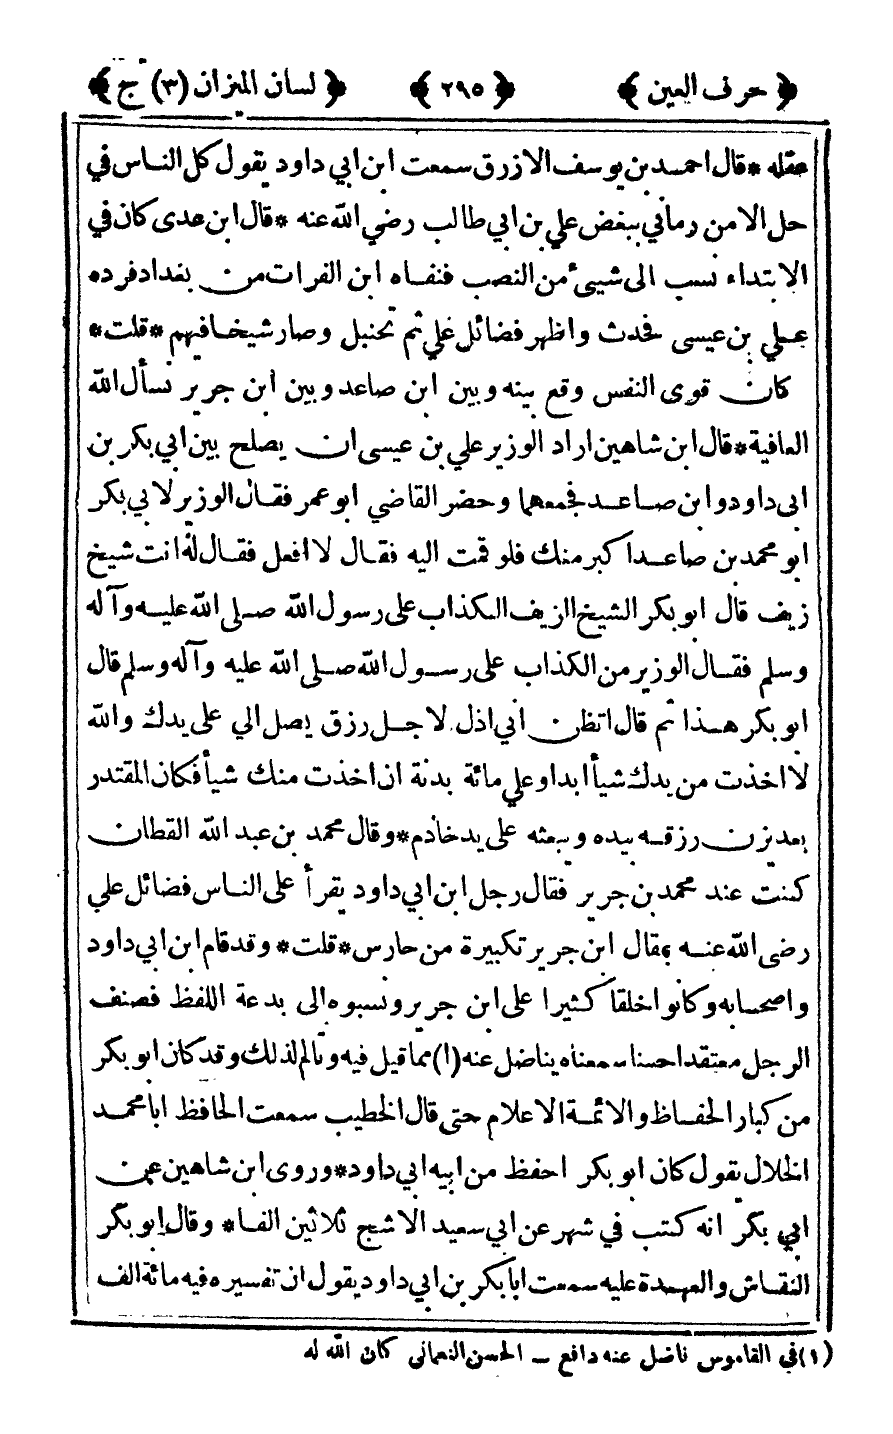 ﴿ حرف العين ﴾ ﴿ ٢٩٥ ﴾ ﴿ لسان الميزان (٣) ج ﴾
عقله * قال احمد بن يوسف الازرق سمعت ابن ابي داود يقول كل الناس في
حل الا من رماني ببغض علي بن ابي طالب رضي الله عنه * قال ابن عدى كان في
الابتداء نسب الى شيئ من النصب فنفاه ابن الفرات من بغداد فرده
علي بن عيسى فحدث واظهر فضائل علي ثم تحنبل وصار شيخا فيهم * قلت *
كان قوى النفس وقع بينه وبين ابن صاعد وبين ابن جرير نسأل الله
العافية * قال ابن شاهين اراد الوزير علي بن عيسى ان يصلح بين ابي بكر بن
ابى داود وابن صاعد فجمعهما وحضر القاضي ابو عمر فقال الوزير لابي بكر
ابو محمد بن صاعد اكبر منك فلو قمت اليه فقال لا افعل فقال له انت شيخ
زيف قال ابو بكر الشيخ الزيف الكذاب على رسول الله صلى الله عليه وآله
وسلم فقال الوزير من الكذاب على رسول الله صلى الله عليه وآله وسلم قال
ابو بكر هذا ثم قال اتظن اني اذل لاجل رزق يصل الي على يدك والله
لا اخذت من يدك شيأ ابدا وعلي مائة بدنة ان اخذت منك شيأ فكان المقتدر
بعد يزن رزقه بيده ويبعثه على يد خادم * وقال محمد بن عبد الله القطان
كنت عند محمد بن جرير فقال رجل ابن ابي داود يقرأ على الناس فضائل علي
رضى الله عنه فقال ابن جرير تكبيرة من حارس * قلت * وقد قام ابن ابي داود
واصحابه وكانوا خلقا كثيرا على ابن جرير ونسبوه الى بدعة اللفظ فصنف
الرجل معتقدا حسنا سمعناه يناضل عنه (١) مما قيل فيه وتألم لذلك وقد كان ابو بكر
من كبار الحفاظ والائمة الاعلام حتى قال الخطيب سمعت الحافظ ابا محمد
الخلال يقول كان ابو بكر احفظ من ابيه ابي داود * وروى ابن شاهين عن
ابي بكر انه كتب في شهر عن ابي سعيد الاشج ثلاثين الفا * وقال ابو بكر
النقاش والعهدة عليه سمعت ابا بكر بن ابي داود يقول ان تفسيره فيه مائة الف
(١) في القاموس ناضل عنه دافع – الحسن النعمانى كان الله له